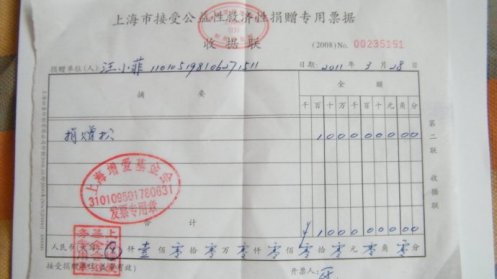 上海市接受公益性救济性捐赠专用票据
收据联 (2008)No. 00235151
捐赠单位(人) 汪小菲 110105198106271511 日期: 2011 年 3 月 28 日
摘 要 金 额
千 百 十 万 千 百 十 元 角 分
捐赠款 1 0 0 0 0 0 0 0 0
上海增爱基金会
310109501780631
发票专用章
合 计 ¥ 1 0 0 0 0 0 0 0 0
人民币 仟 壹 佰 零 拾 零 万 零 仟 零 佰 零 拾 零 元 零 角 零 分
接受捐赠单位 开票人:
第二联 收据联